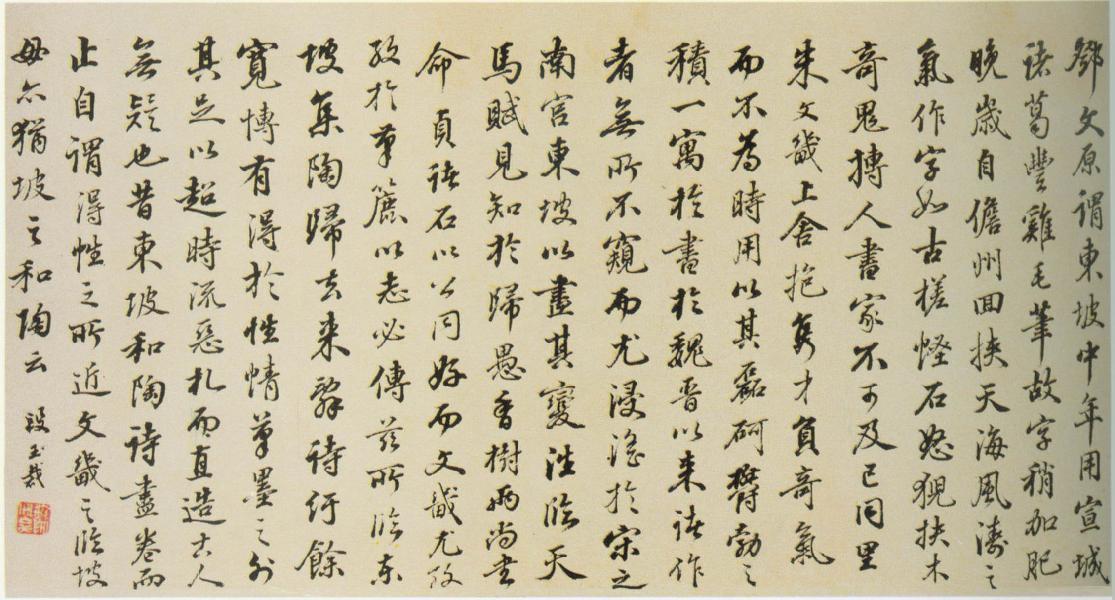 鄧文原謂東坡中年用宣城
諸葛豐雞毛筆故字稍加肥
晚歲自儋州回挾天海風濤之
氣作字如古槎怪石怒猊抉木
奇鬼搏人書家不可及已同里
朱文畿上舍抱雋才負奇氣
而不為時用以其磊砢欝勃之
積一寓於書於魏晉以來諸作
者無所不窺而尤浸淫於宋之
南宫東坡以盡其變洼臨天
馬賦見知於歸愚香樹兩尚書
命貞諸石以公同好而文畿尤
於草以志必傳茲所臨東
坡集陶歸去来辭詩紆餘
寬博有得於性情草墨之外
其足以超時流惡札而直造古人
無疑也昔東坡和陶詩盡卷而
止自謂得性之所近文畿之臨坡
毋亦猶坡之和陶云 段玉裁